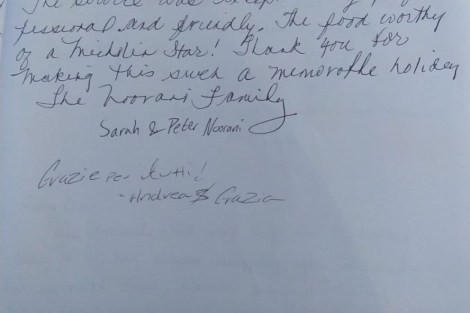 The service was
fessional and friendly. The food worthy
of a Michelin Star! Thank you for
making this such a memorable holiday
The Noorani Family
Sarah & Peter Noorani
Grazie per tutti!
- Andrea & Grazia